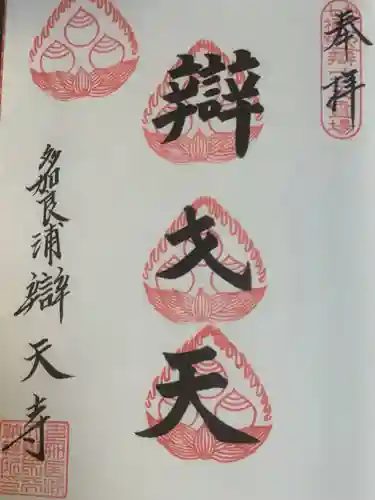 奉拝
辯才天
多嘉良浦
辯天寺